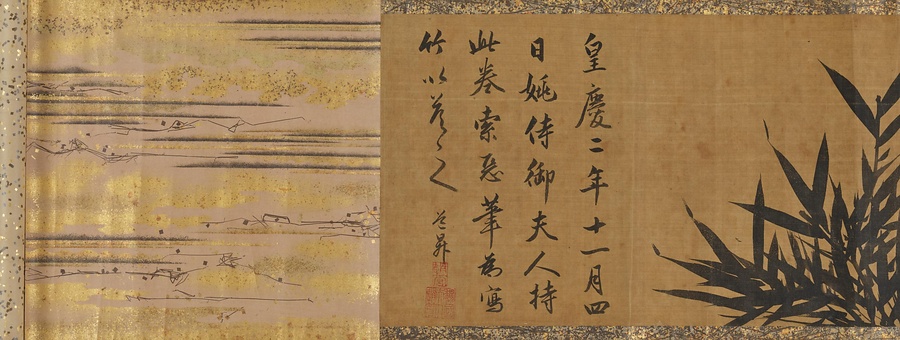 皇慶二年十一月四
日姚侍御夫人持
此卷索惡筆為寫
竹以答之 道昇